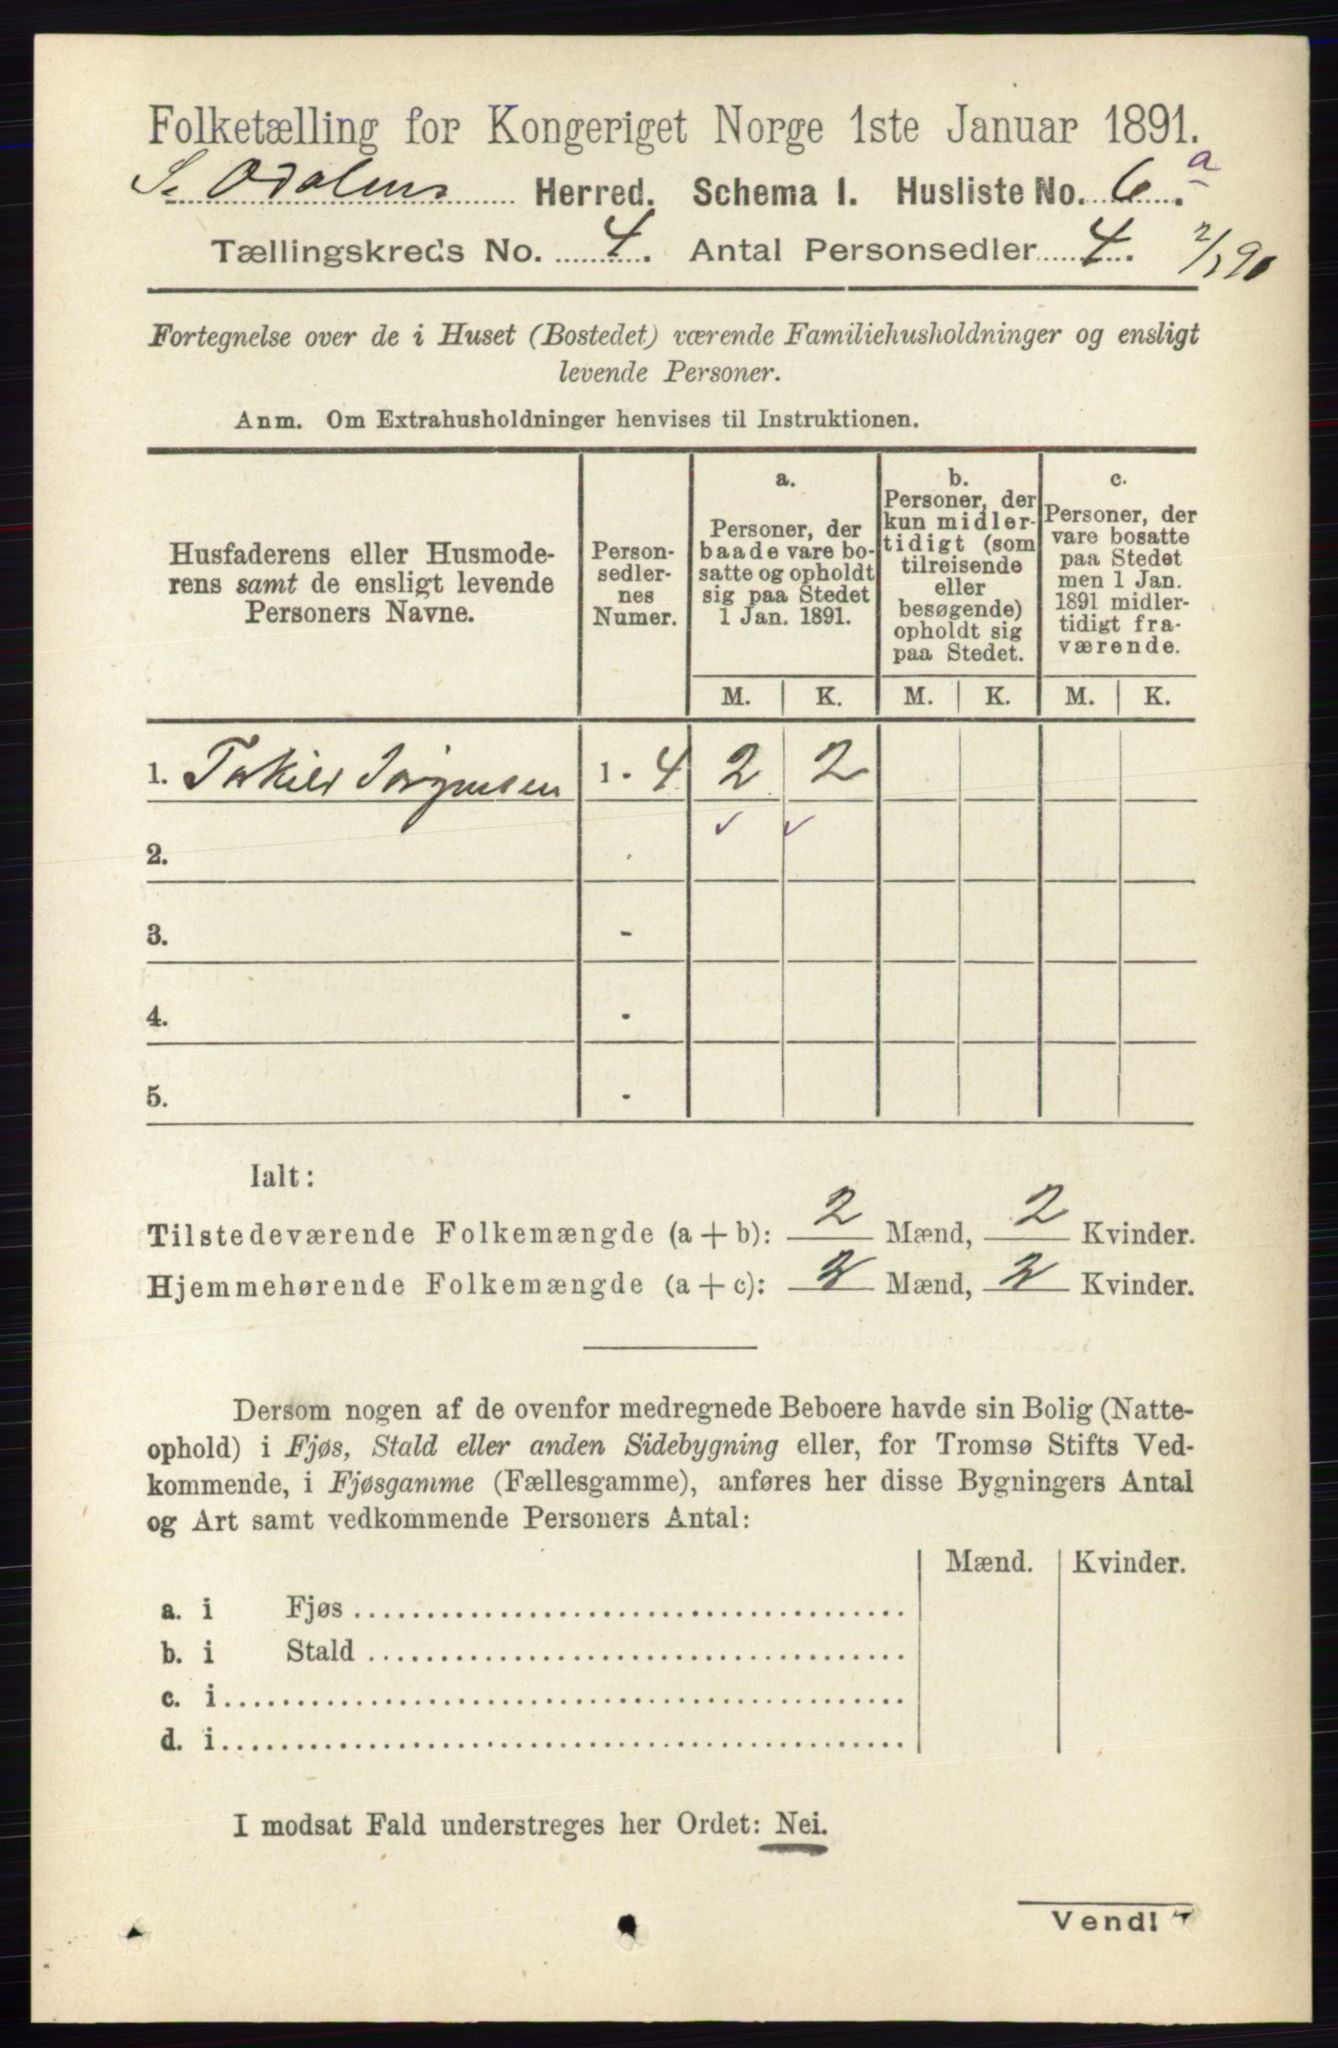 Folketælling for Kongeriget Norge 1ste Januar 1891.
S. Odalens Herred. Schema I. Husliste No. 6.a
Tællingskreds No. 4. Antal Personsedler 4.
Fortegnelse over de i Huset (Bostedet) værende Familiehusholdninger og ensligt
levende Personer.
Anm. Om Extrahusholdninger henvises til Instruktionen.
Husfaderens eller Husmode-
rens samt de ensligt levende
Personers Navne.
Person-
sedler-
nes
Numer.
a.
Personer, der
baade vare bo-
satte og opholdt
sig paa Stedet
1 Jan. 1891.
b.
Personer, der
kun midler-
tidigt (som
tilreisende
eller
besøgende)
opholdt sig
paa Stedet.
c.
Personer, der
vare bosatte
paa Stedet
men 1 Jan.
1891 midler-
tidigt fra-
værende.
M. K. M. K. M. K.
1. Torkild Jørgensen 1 - 4 2 2
✓ ✓
2.
3. -
4. -
5. -
Ialt:
Tilstedeværende Folkemængde (a + b): 2 Mænd, 2 Kvinder.
Hjemmehørende Folkemængde (a + c): 2 Mænd, 2 Kvinder.
Dersom nogen af de ovenfor medregnede Beboere havde sin Bolig (Natte-
ophold) i Fjøs, Stald eller anden Sidebygning eller, for Tromsø Stifts Ved-
kommende, i Fjøsgamme (Fællesgamme), anføres her disse Bygningers Antal
og Art samt vedkommende Personers Antal:
Mænd. Kvinder.
a. i Fjøs
b. i Stald
c. i
d. i
I modsat Fald understreges her Ordet: Nei.
Vend!